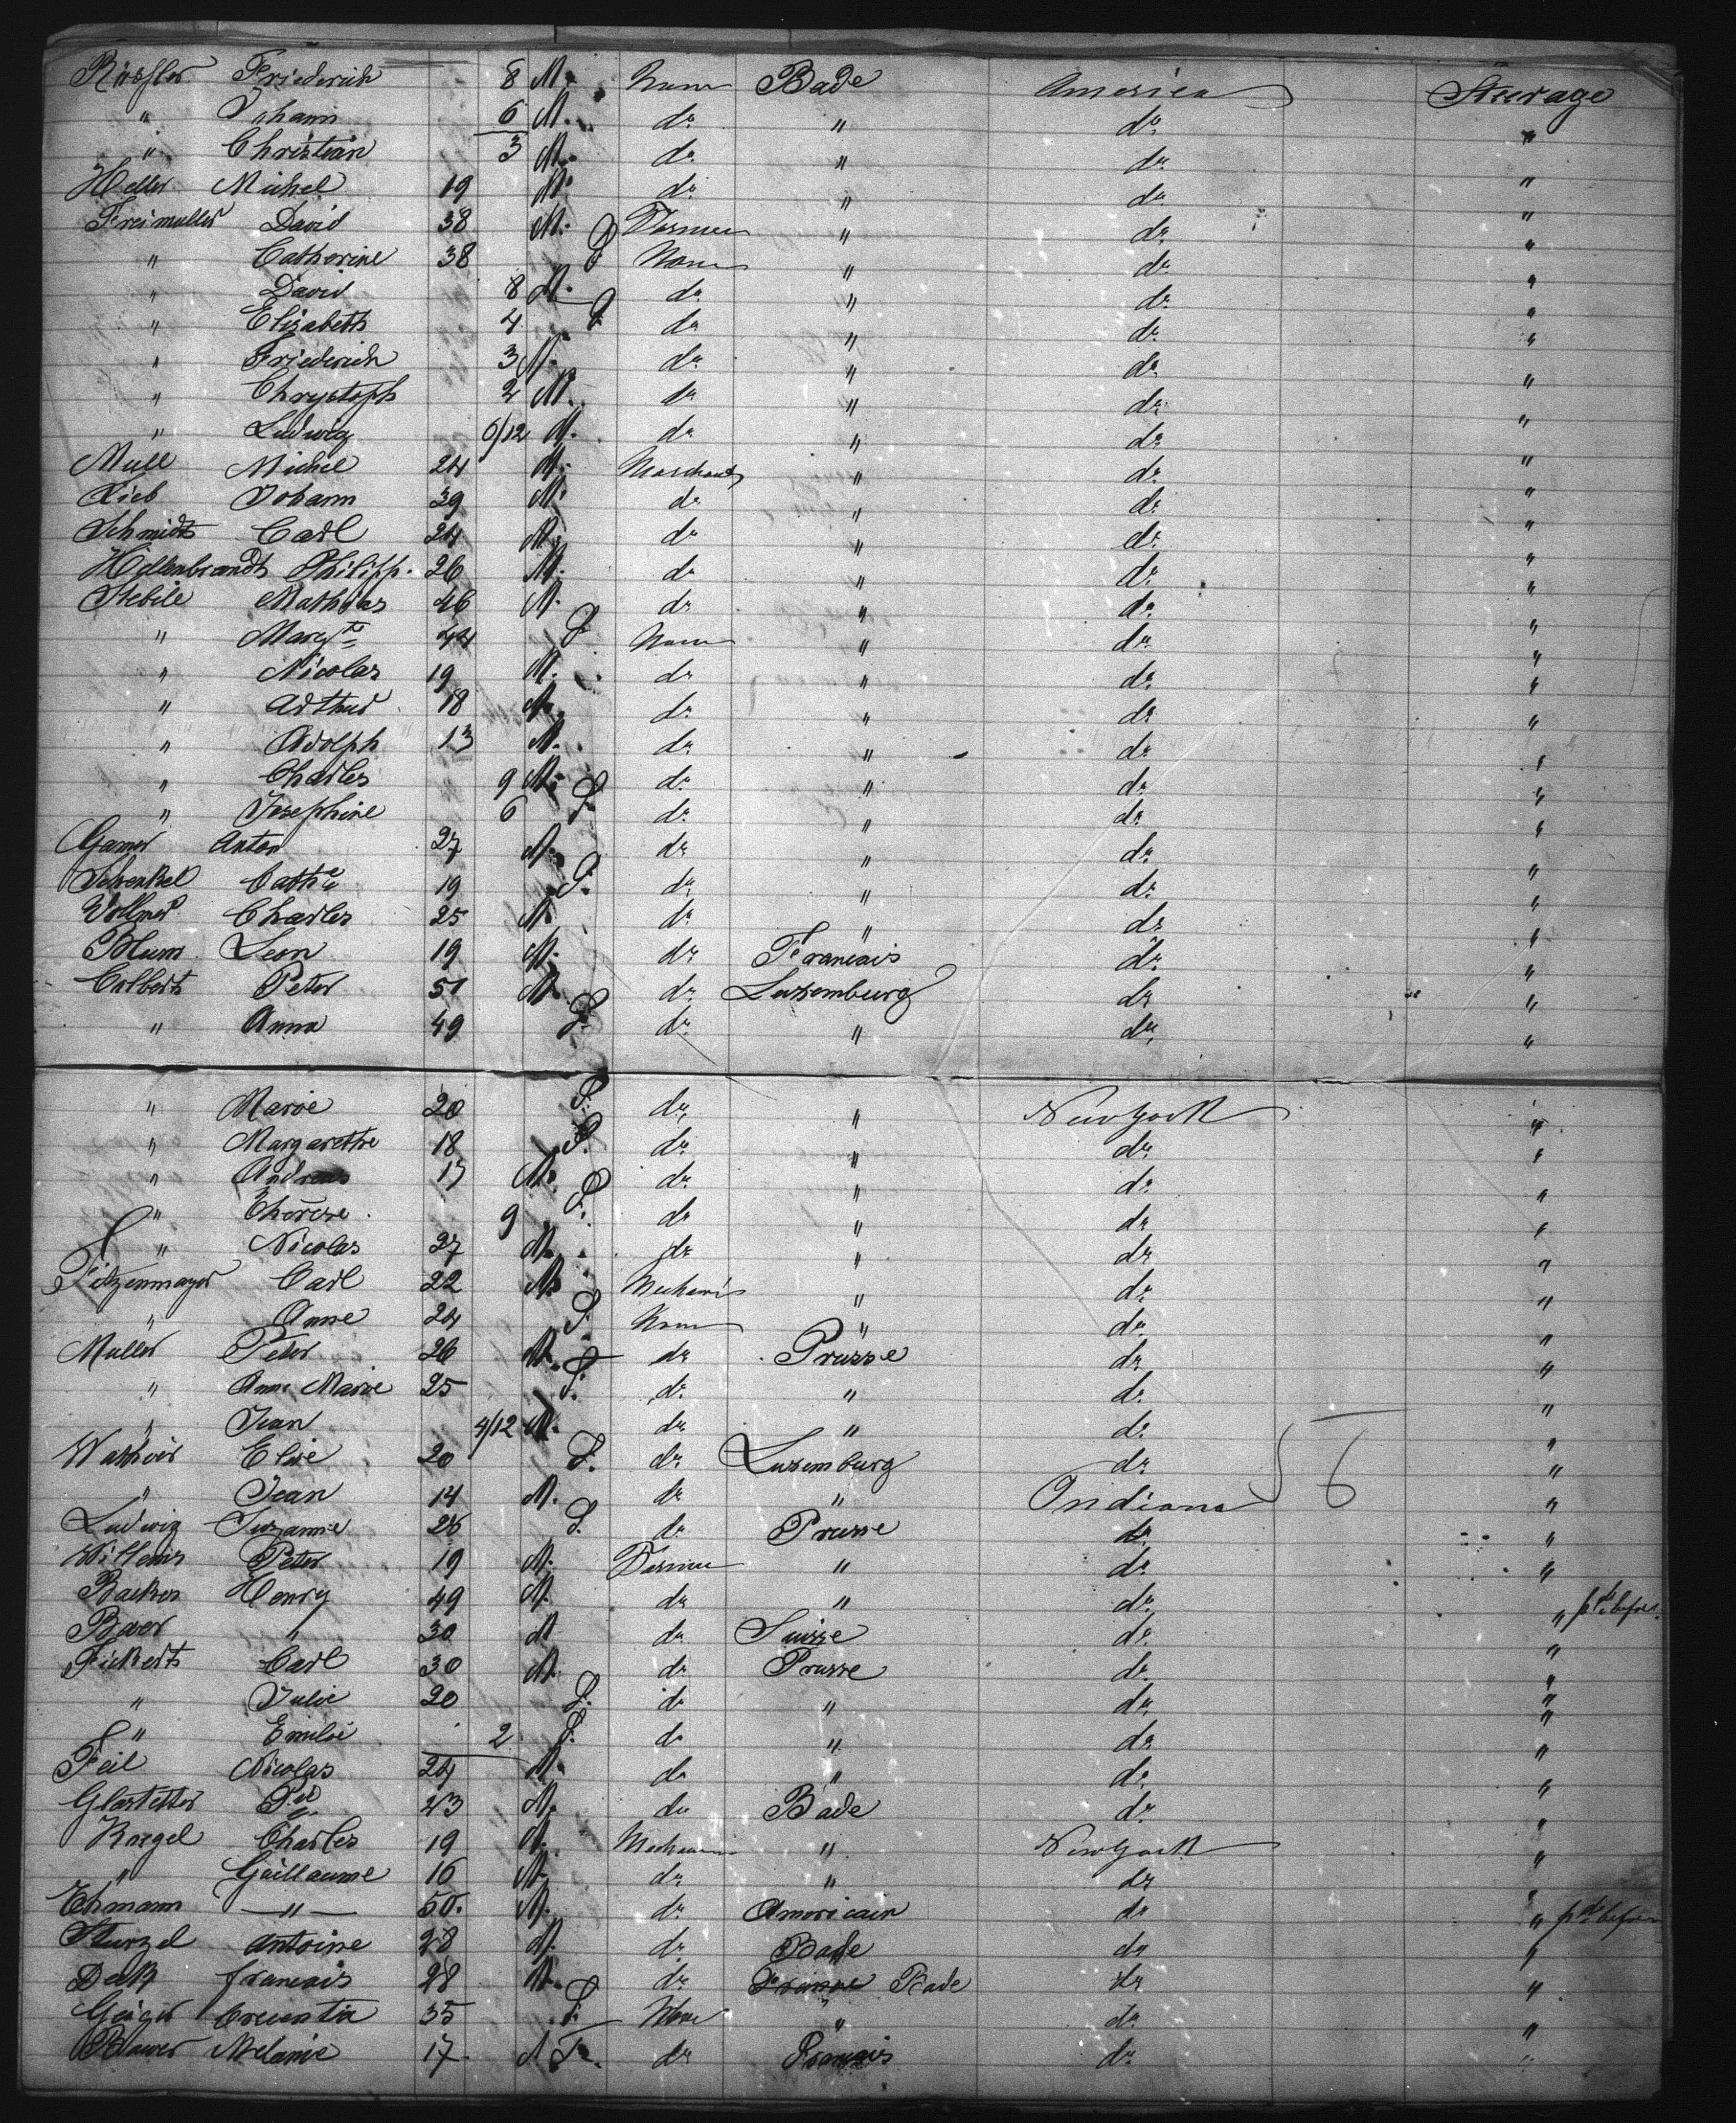 Rössler Friederich 8 M. None Bade America Steerage
" Johann 6 M. do " do "
" Christian 3 M. do " do "
Heller Michel 19 M. do " do "
Freimuller David 38 M. Farmer " do "
" Catherine 38 F None " do "
" David 8 M. do " do "
" Elizabeth 4 F do " do "
" Friederich 3 M. do " do "
" Chrystoph 2 M. do " do "
" Ludwig 6/12 M. do " do "
Mull Michel 24 M. Marchand " do "
Lieb Johann 39 M. do " do "
Schmidt Carl 24 M. do " do "
Hillenbrandt Philipp. 26 M. do " do "
Stebile Mathias 46 M. do " do "
" Margte 44 F None " do "
" Nicolas 19 M. do " do "
" Arthur 18 M. do " do "
" Adolph 13 M. do " do "
" Charles 9 M. do " do "
" Josephine 6 F. do " do "
Gamer Anton 27 M. do " do "
Schenkel Cathe 19 F. do " do "
Vollmer Charles 25 M. do " do "
Blum Leon 19 M. do Francais do "
Colbert Peter 51 M. do Luxemburg do "
" Anna 49 F. do " do "
" Marie 20 F. do " New York "
" Margarethe 18 F. do " do "
" Andreas 17 M. do " do "
" Therese 9 F. do " do "
" Nicolas 27 M. do " do "
Fitzenmayer Carl 22 M. " do "
" Anne 24 F. None " do "
Muller Peter 26 M. do Prusse do "
" Anne Marie 25 F. do " do "
" Jean 4/12 M. do " do "
Elise 20 F. do Luxemburg do "
" Jean 14 M. do " Indiana "
Ludwig Suzanne 26 F. do Prusse do "
Peter 19 M. Farmer " do "
Backes Henry 49 M. do " do "
" 30 M do Suisse do "
Fickert Carl 30 M. do Prusse do "
" Julie 20 F. do " do "
" Emilie 2 F. do " do "
Feil Nicolas 24 M. do " do "
Glastetter 23 M. do Bade do "
Kregel Charles 19 M. " New York "
" Guillaume 16 M. do " do "
Ehmann —"— 50. M. do Americain do "
Sturzel Antoine 28 M. do Bade do "
Deck francais 28 M. do Bade do "
Geiger Crecentia 35 F. None " do "
Melanie 17 F. do Francais do "
56